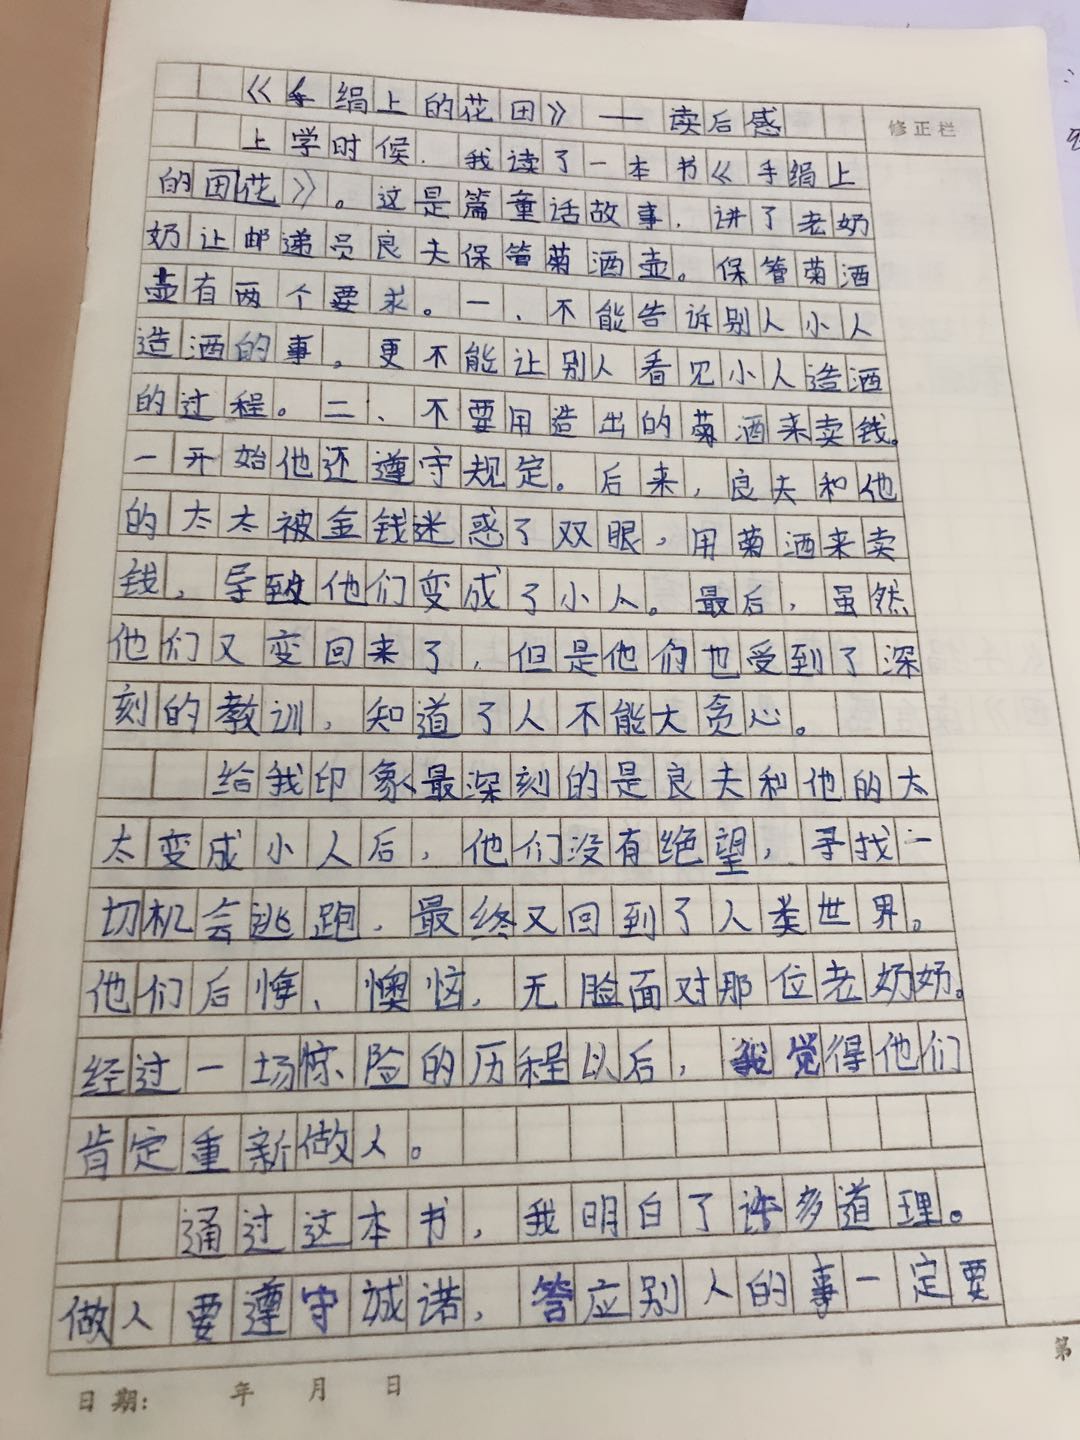 《手绢上的花田》——读后感
修正栏
上学时候，我读了一本书《手绢上
的田花》。这是篇童话故事，讲了老奶
奶让邮递员良夫保管菊酒壶。保管菊酒
壶有两个要求。一、不能告诉别人小人
造酒的事。更不能让别人看见小人造酒
的过程。二、不要用造出的菊酒来卖钱。
一开始他还遵守规定。后来，良夫和他
的太太被金钱迷惑了双眼，用菊酒来卖
钱，导致他们变成了小人。最后，虽然
他们又变回来了，但是他们也受到了深
刻的教训，知道了人不能大贪心。
给我印象最深刻的是良夫和他的太
太变成小人后，他们没有绝望，寻找一
切机会逃跑，最终又回到了人类世界。
他们后悔、懊恼，无脸面对那位老奶奶。
经过一场惊险的历程以后，我觉得他们
肯定重新做人。
通过这本书，我明白了许多道理。
做人要遵守诚诺，答应别人的事一定要
日期： 年 月 日
第